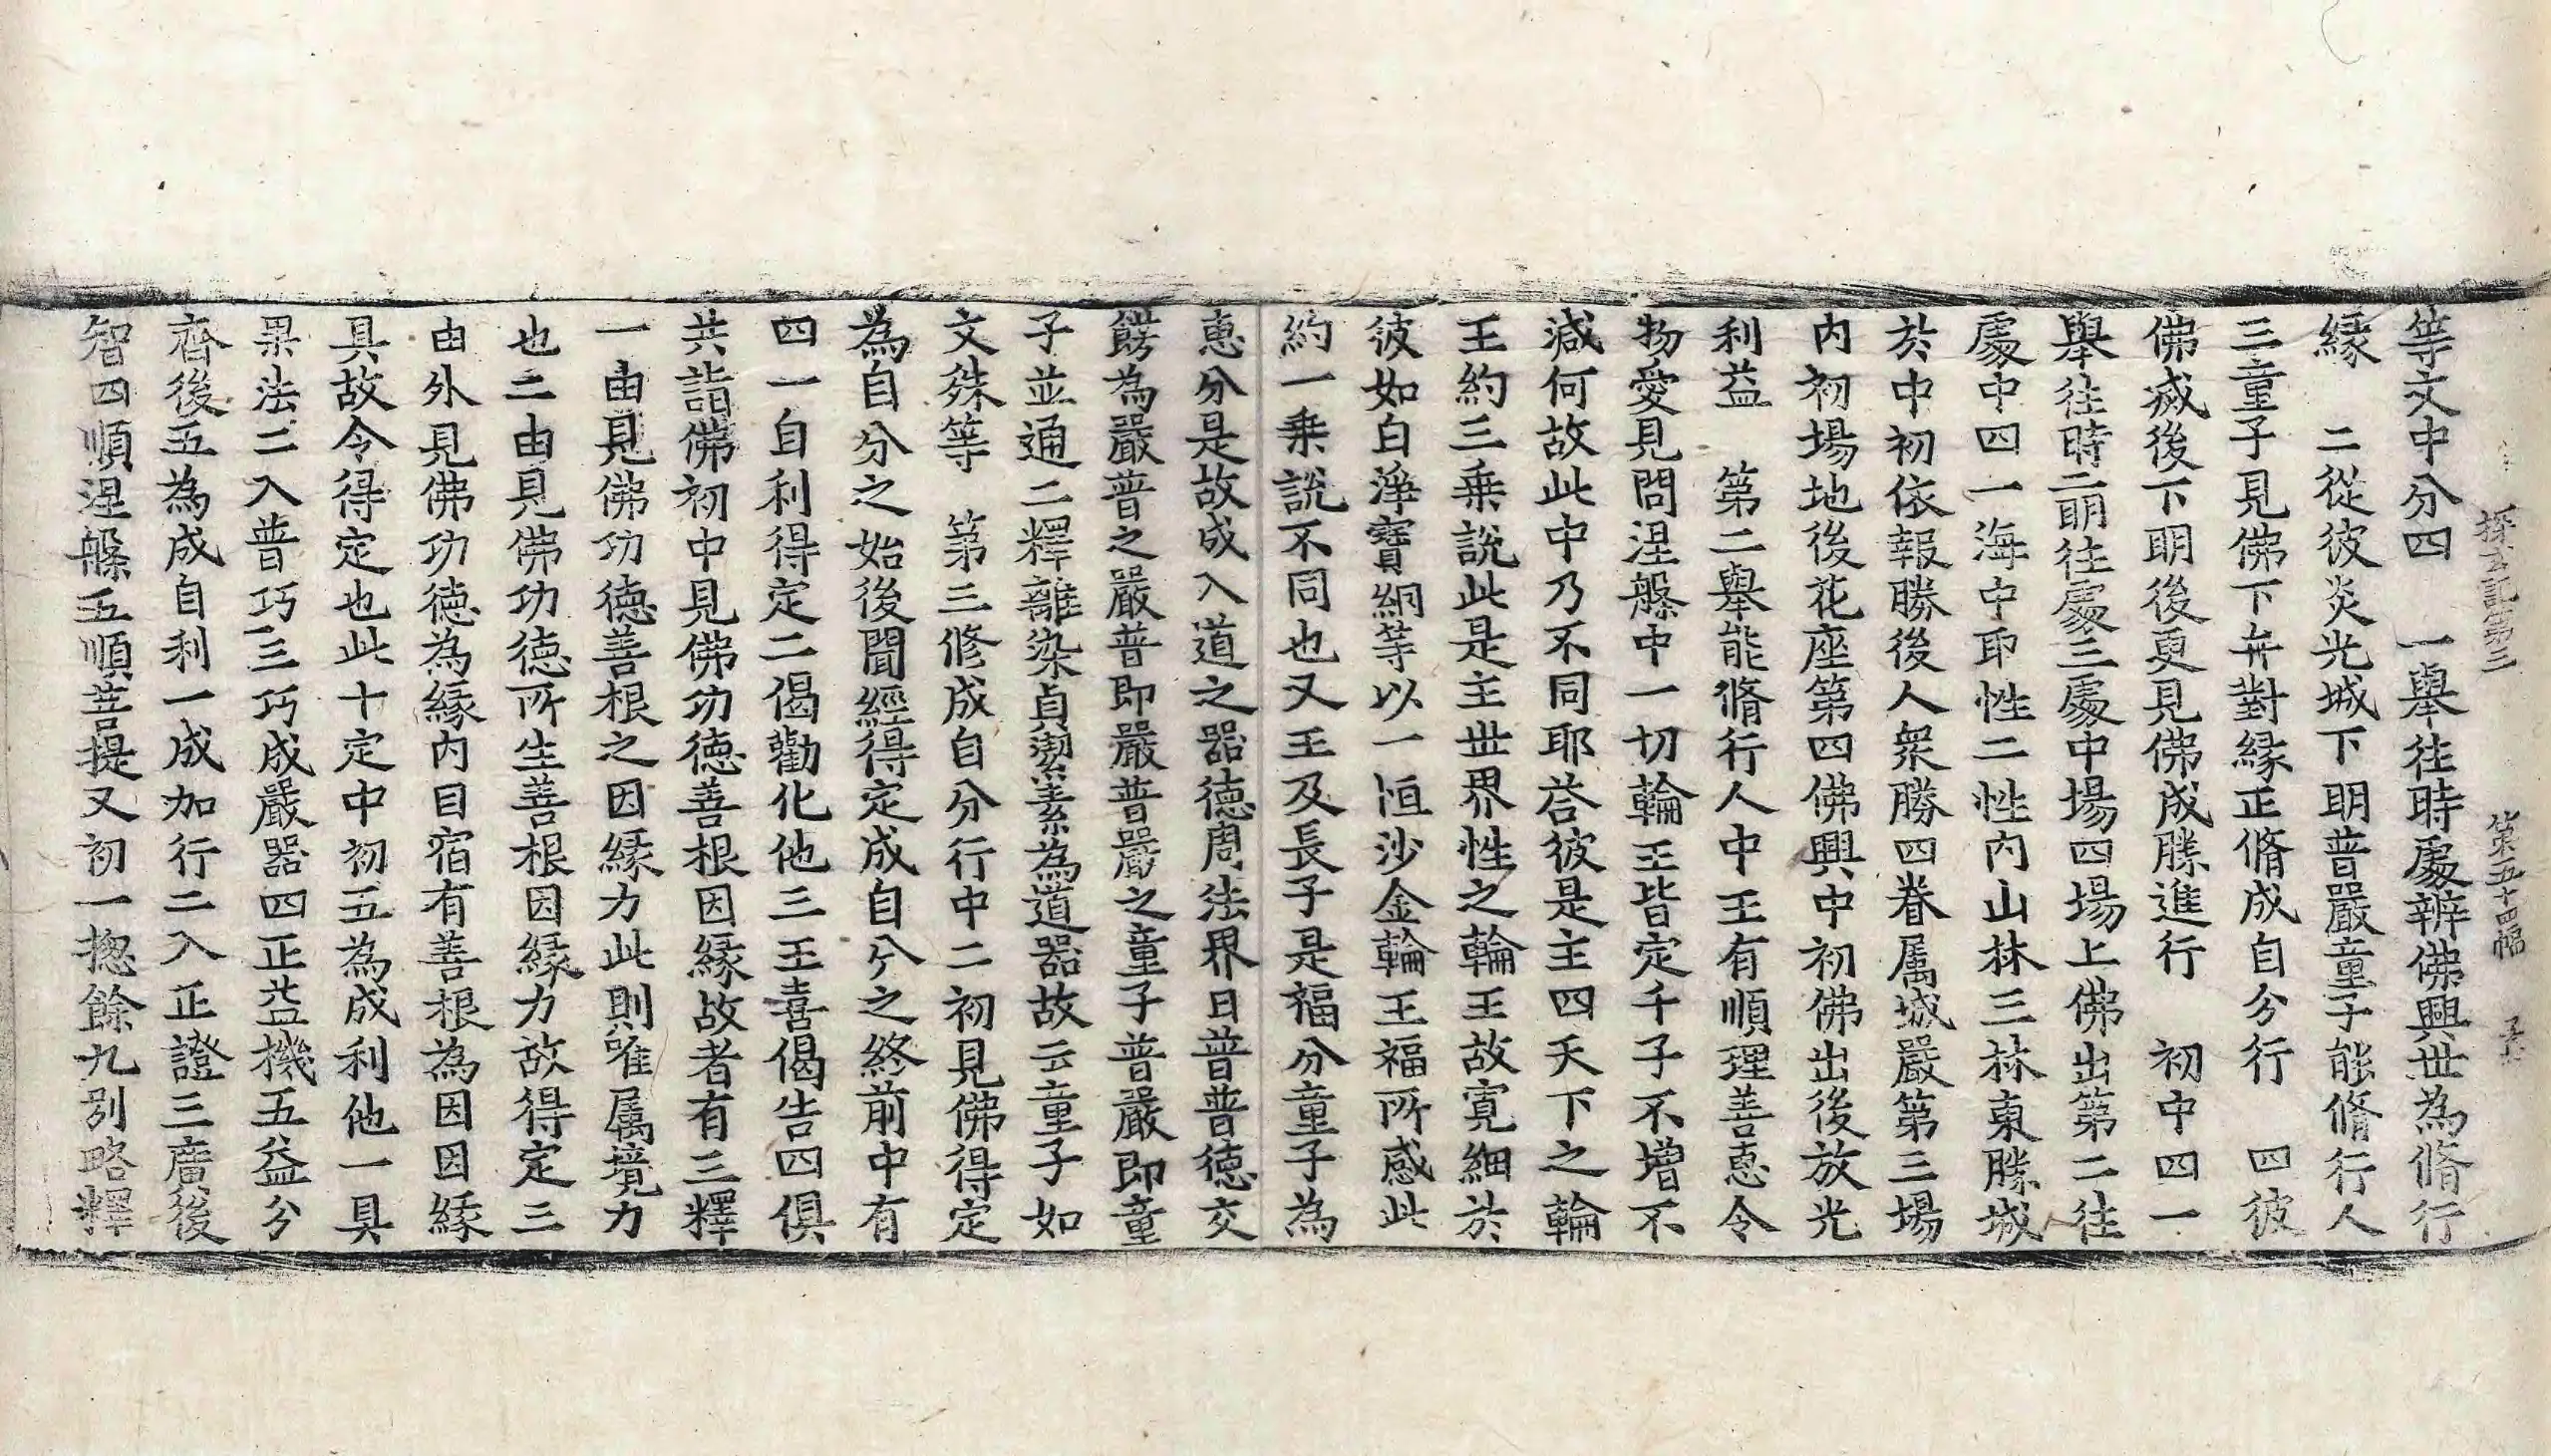 探玄記第三 第五十四幅 子
等文中分四 一舉往時處辨佛興世為脩行
緣 二從彼炎光城下明普嚴童子能脩行人
三童子見佛下弁對緣正脩成自分行 四彼
佛滅後下明後更見佛成勝進行 初中四一
舉往時二明往處三處中場四場上佛出第二往
處中四一海中即性二性內山林三林東勝城
於中初依報勝後人衆勝四眷属城嚴第三場
內初場地後花座第四佛興中初佛出後放光
利益 第二舉能脩行人中王有順理善惠令
物愛見問涅槃中一切輪王皆定千子不增不
減何故此中乃不同耶荅彼是主四天下之輪
王約三乘說此是主世界性之輪王故寬細於
彼如白淨寶網等以一恒沙金輪王福所感此
約一乘說不同也又王及長子是福分童子為
惠分是故成入道之器德周法界曰普普德交
餝為嚴普之嚴普即嚴普嚴之童子普嚴即童
子並通二釋離染貞潔素為道器故云童子如
文殊等 第三修成自分行中二初見佛得定
為自分之始後聞經得定成自分之終前中有
四一自利得定二偈勸化他三王喜偈告四俱
共詣佛初中見佛功德善根因緣故者有三釋
一由見佛功德善根之因緣力此則唯属境力
也二由見佛功德所生善根因緣力故得定三
由外見佛功德為緣內目宿有善根為因因緣
具故令得定也此十定中初五為成利他一具
果法二入普巧三巧成嚴器四正益機五益分
齊後五為成自利一成加行二入正證三廣後
智四順涅槃五順菩提又初一揔餘九別略釋